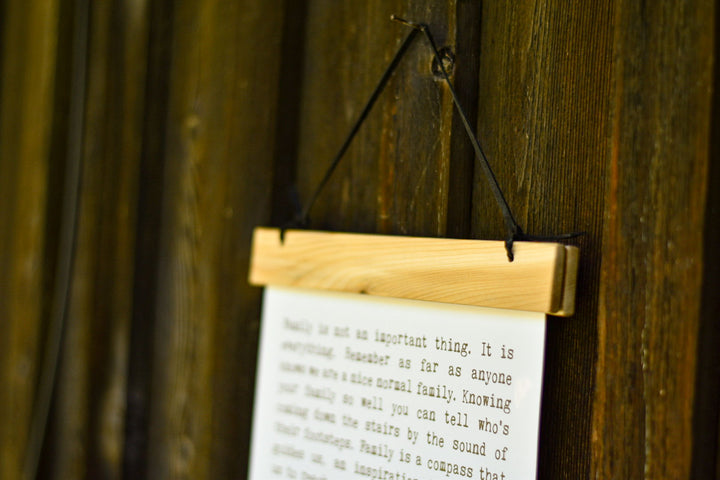 Family is not an important thing. It is
everything. Remember as far as anyone
knows we are a nice normal family. Knowing
your family so well you can tell who's
coming down the stairs by the sound of
their footsteps. Family is a compass that
guides us, an inspiration
us to